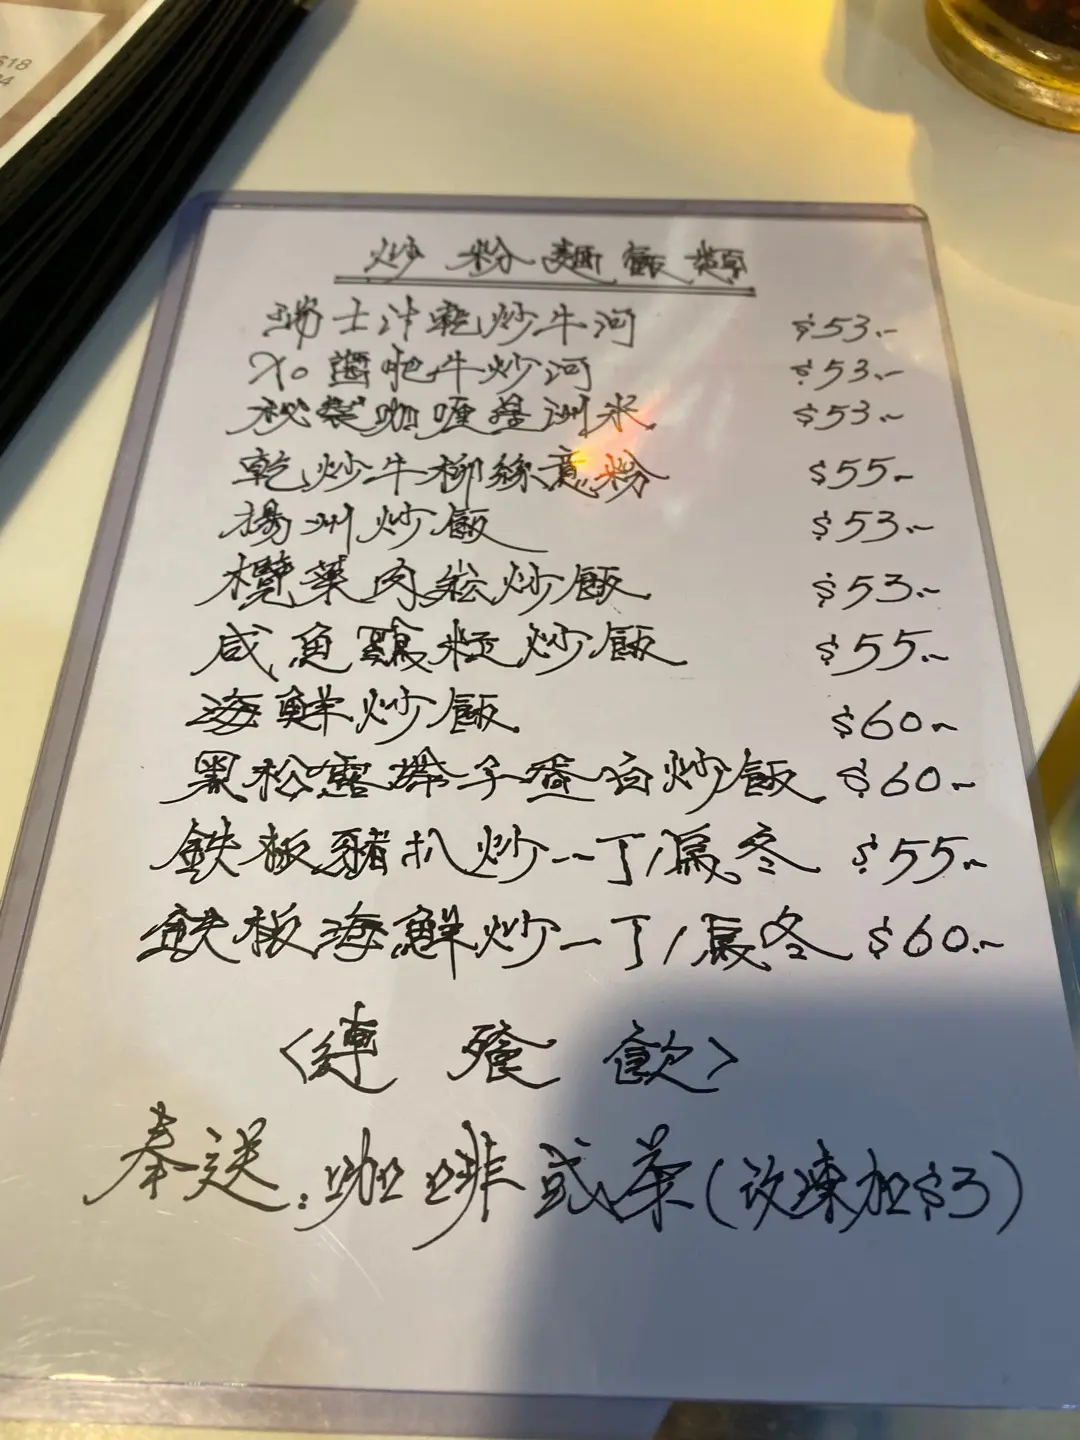 618
炒粉麵飯類
瑞士汁乾炒牛河 $53.-
XO醬炮牛炒河 $53.-
秘製咖喱星洲米 $53.-
乾炒牛柳絲意粉 $55.-
揚州炒飯 $53.-
欖菜肉崧炒飯 $53.-
咸魚鷄粒炒飯 $55.-
海鮮炒飯 $60.-
黑松露帶子蛋白炒飯 $60.-
鉄板豬扒炒一丁/烏冬 $55.-
鉄板海鮮炒一丁/烏冬 $60.-
<連餐飲>
奉送:咖啡或茶(改凍加$3)